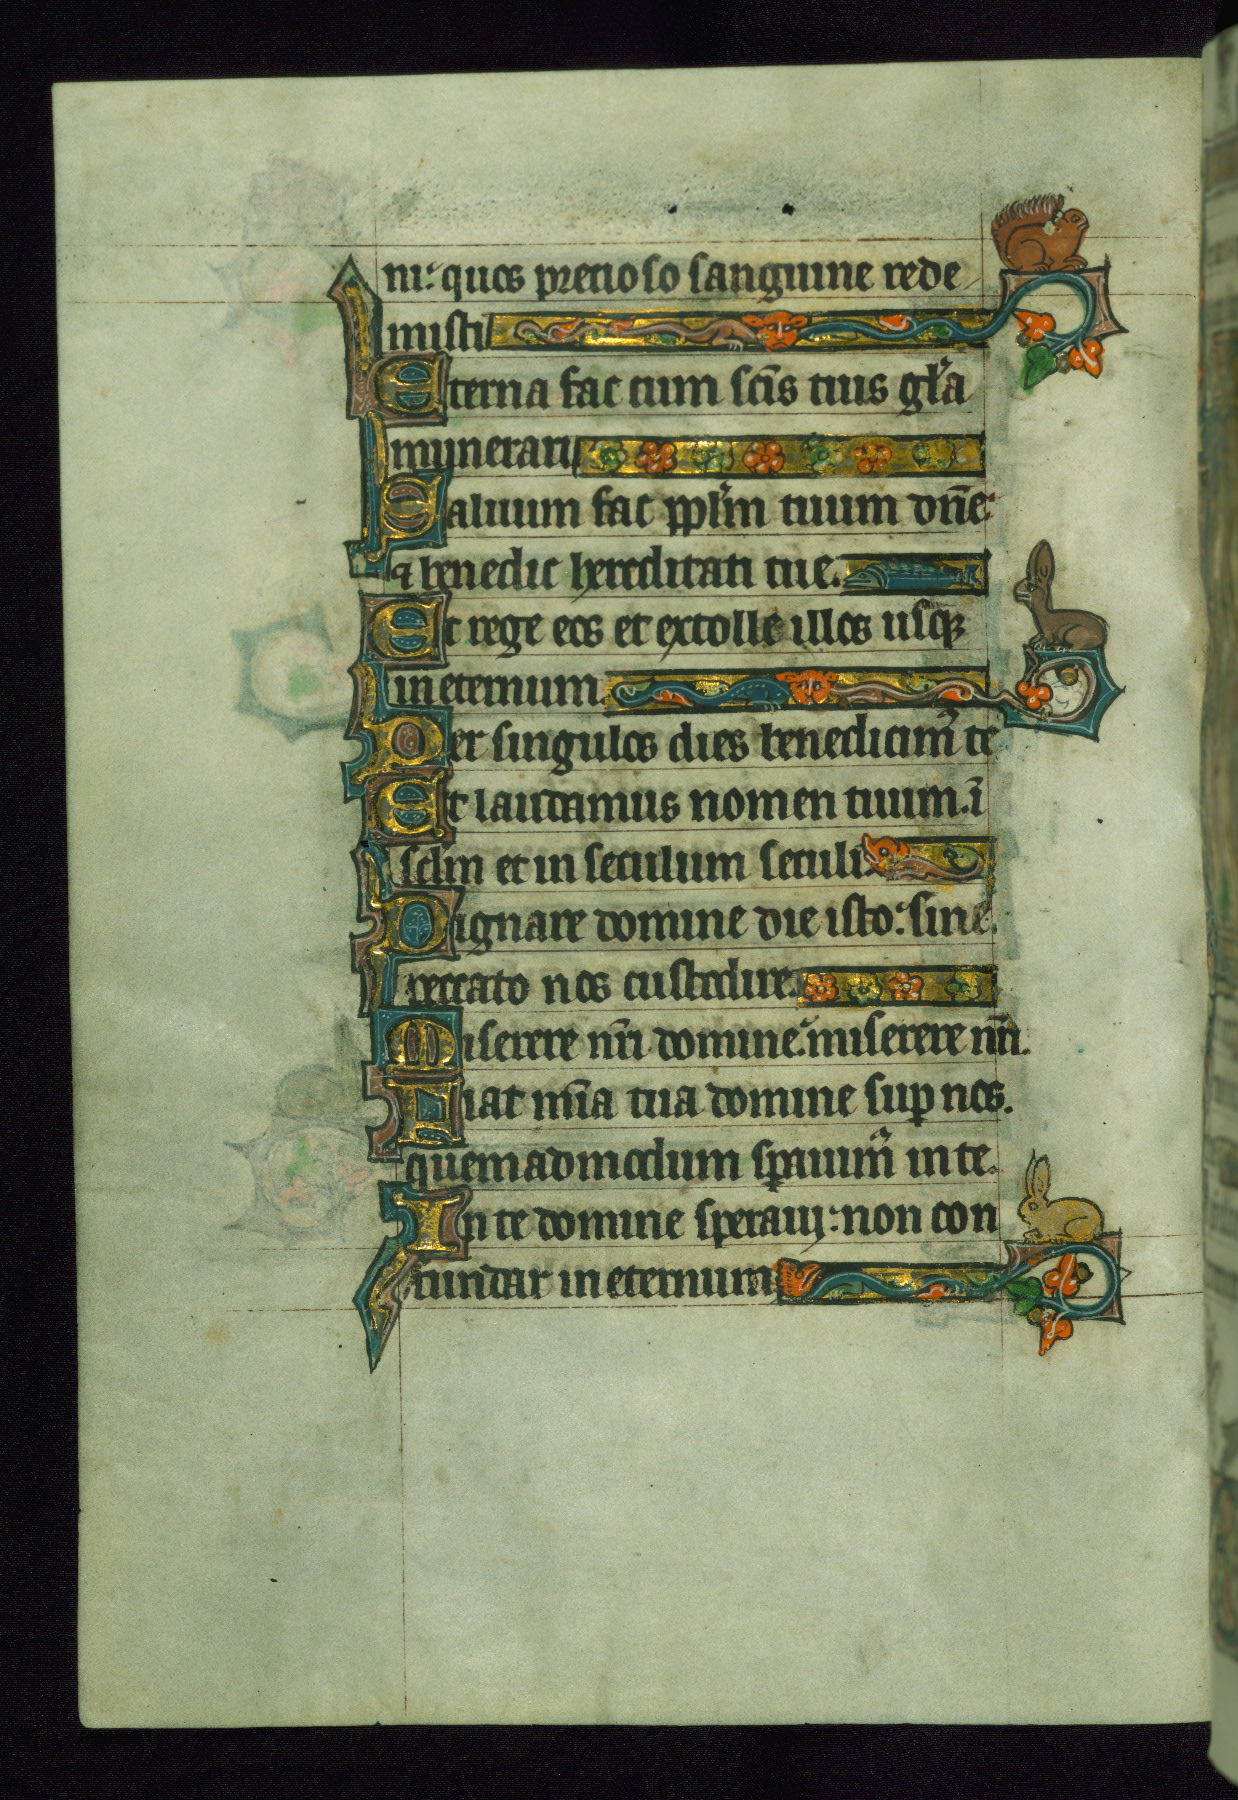 ni: quos precioso sanguine rede
misti
Eterna fac cum scīs tuis gl'a
munerari
Saluum fac ppl'm tuum dn̄e:
⁊ benedic hereditati tue.
Et rege eos et extolle illos usqꝫ
in eternum.
Per singulos dies benedicim' te
Et laudamus nomen tuum. ī
sclm et in seculum seculi
Dignare domine die isto: sine
peccato nos custodire.
Miserere nr̄i domine: miserere nr̄i.
Fiat mīa tua domine suꝑ nos.
quemadmodum sperauim' in te.
In te domine speraui: non con
fundar in eternum